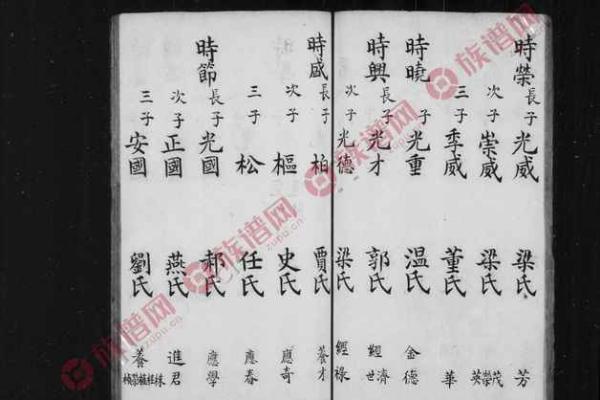 時榮 長子 光威 梁氏 芳
次子 崇威 梁氏 茂榮英
三子 季威 董氏 華
時曉 子 光重 温氏 金德
時興 長子 光才 郭氏 經濟世
次子 光德 梁氏 經祿
時威 長子 柏 賈氏 養才
次子 樞 史氏 應奇
三子 松 任氏 應春
時節 長子 光國 郝氏 應學
次子 正國 燕氏 進君
三子 安國 劉氏 養
族谱网
zupu.cn